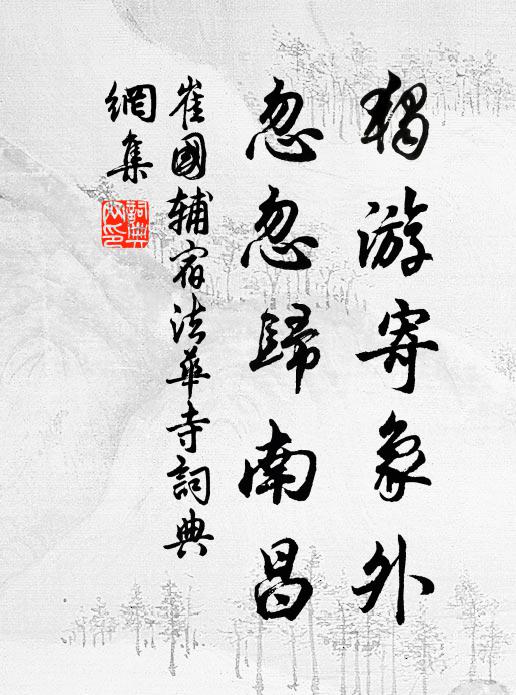 獨游寄象外
忽忽歸南昌
崔國輔宿法華寺詞典
網集
詞典
网印